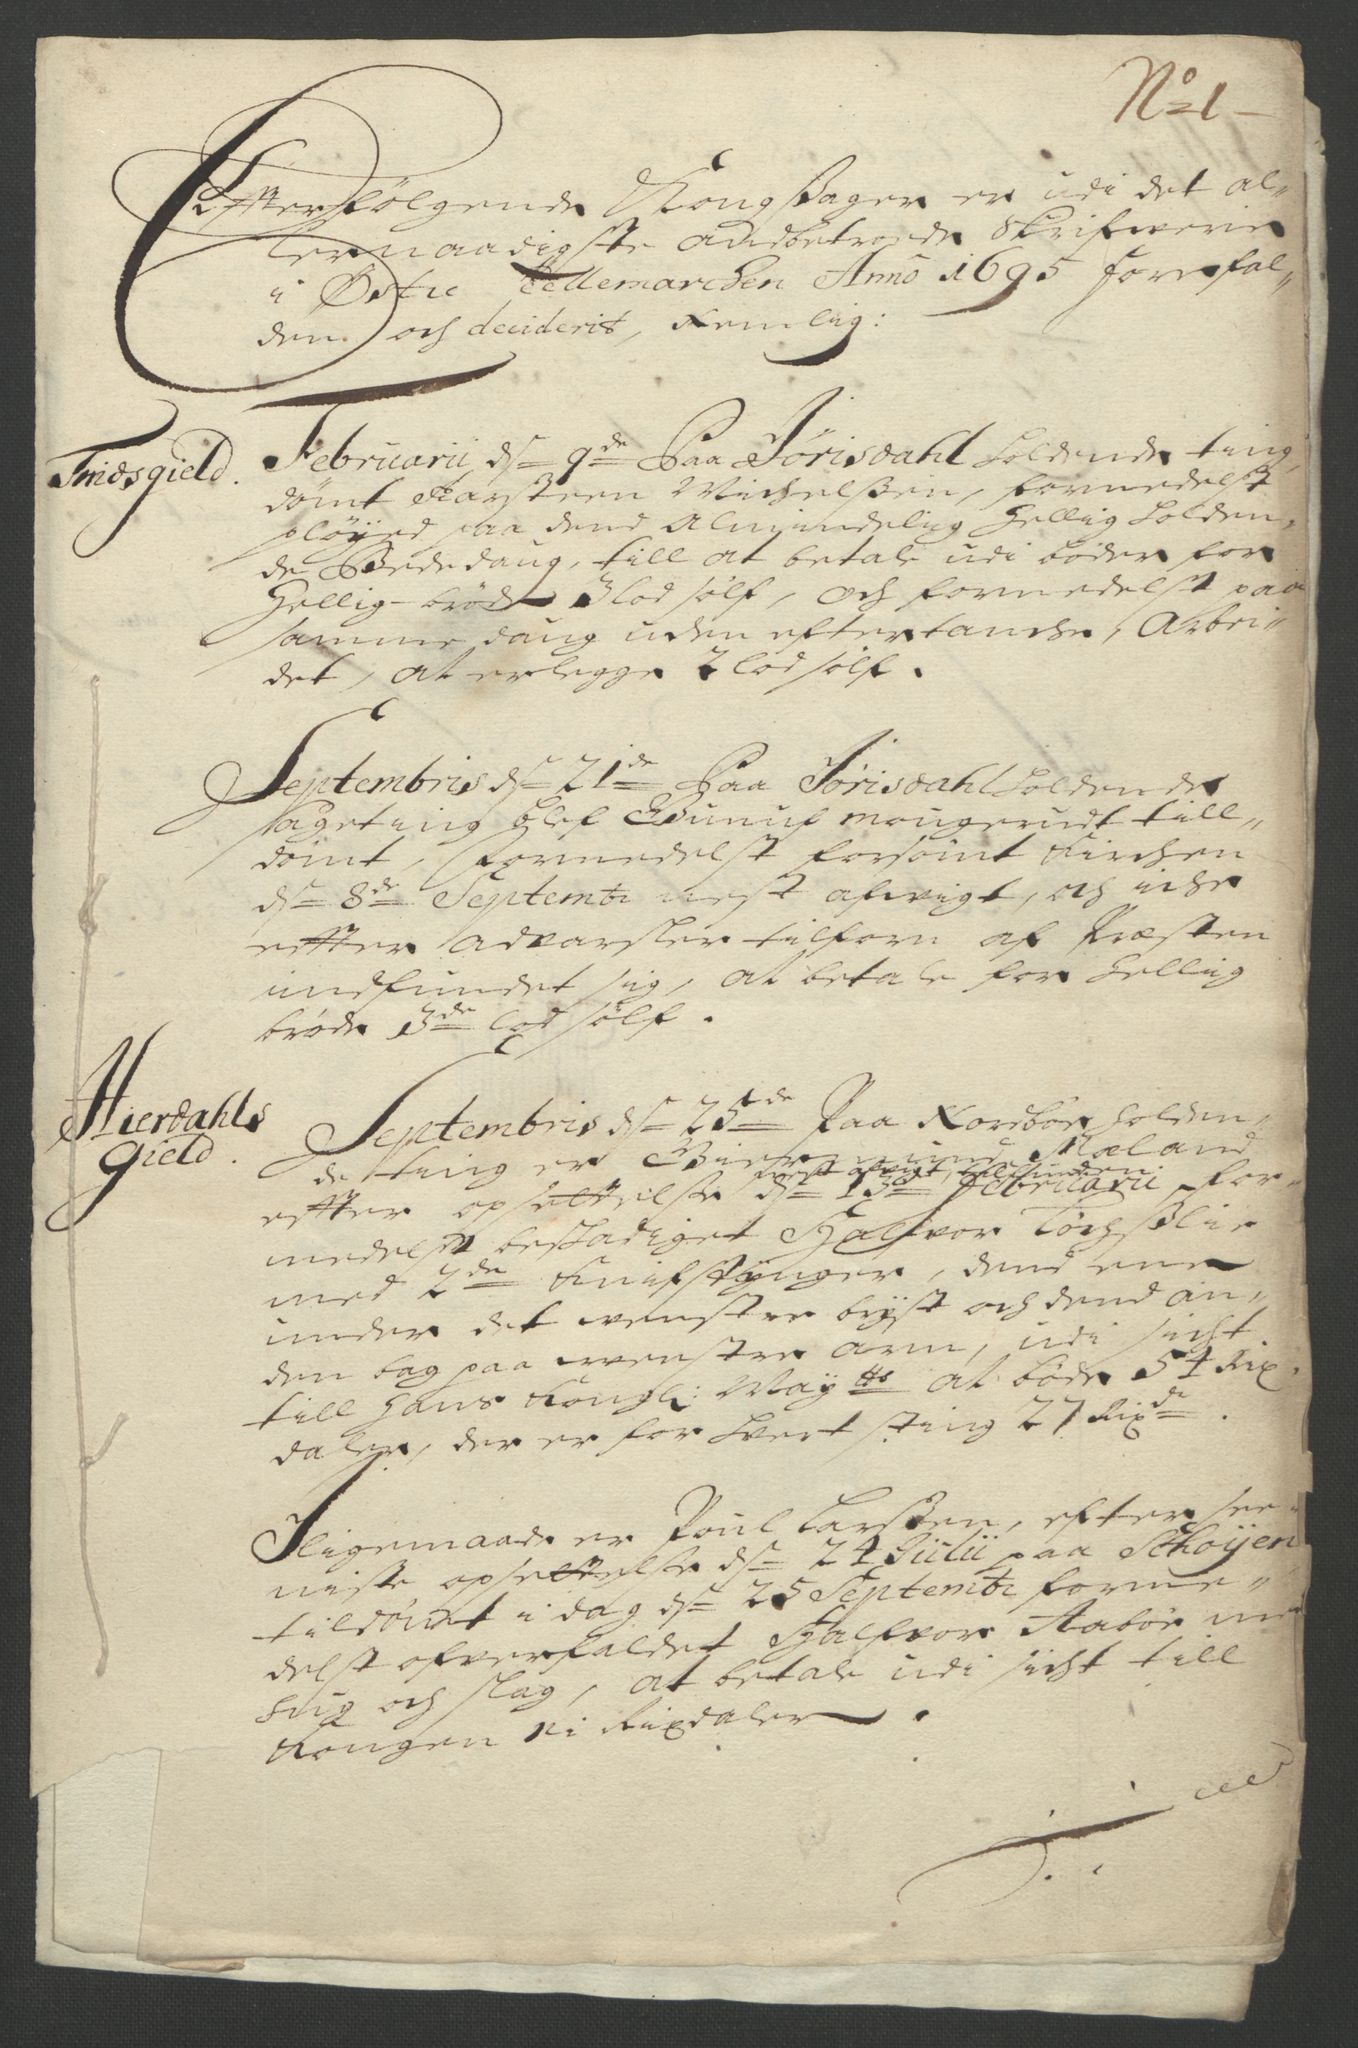 No 1
Effterfølgende Kong Sager er udi det al„
lernaadigste anbetroede Skrifwerie
i Østre Tellemarchen Anno 1695 forefal„
den och deciderit, Nemlig:
Tindsgield.
Februarii dn 9de Paa Jørisdahl holdende ting,
dømt Karsteen Michelsßen, formedelst
pløyed paa dend Almindelig Hellig holden„
de Bededaug, till at betale udi bøder for
Hellig-brøde 3 lod sølf, och formedelst paa
samme daug uden eftertanche, Arbei„
det, at erlegge 2 lod sølf.
Septembris dn 21de Paa Jørisdahl holdende
sageting blef Gunuf Mougerudt till„
dømt, formedelst forsømt Kirchen
dn 8de Septembr nest afvigt, och iche
effter advarsler tilforn af Præsten
indfundet sig, at betale for hellig
brøde 3de lod sølf.
Hierdahls
Gield.
Septembris dn 25de Paa Nordbøe holden„
de ting er Mæland
nest afvigt,
effter opsettelse dn 13de Februarii, for„
medelst beskadiget Halfvor
med 2de Knifstynger, dend ene
under det wenstre bryst och dend an„
den bag paa wenstre arm, udi sicht
till Hans Kongl: Mayts at bøde 54 Rix
daler, der er for hvert sting 27 Rixd.
Iligemaade er Poul Larsßen, efter see„
niste opsettelse dn 24 Julii paa Schoyen
tildømt i dag dn 25 Septembr forme„
delst ofverfaldet Halfvor Aabøe m
hug och slag, at betale udi sicht till
Kongen ni Rixdaler.